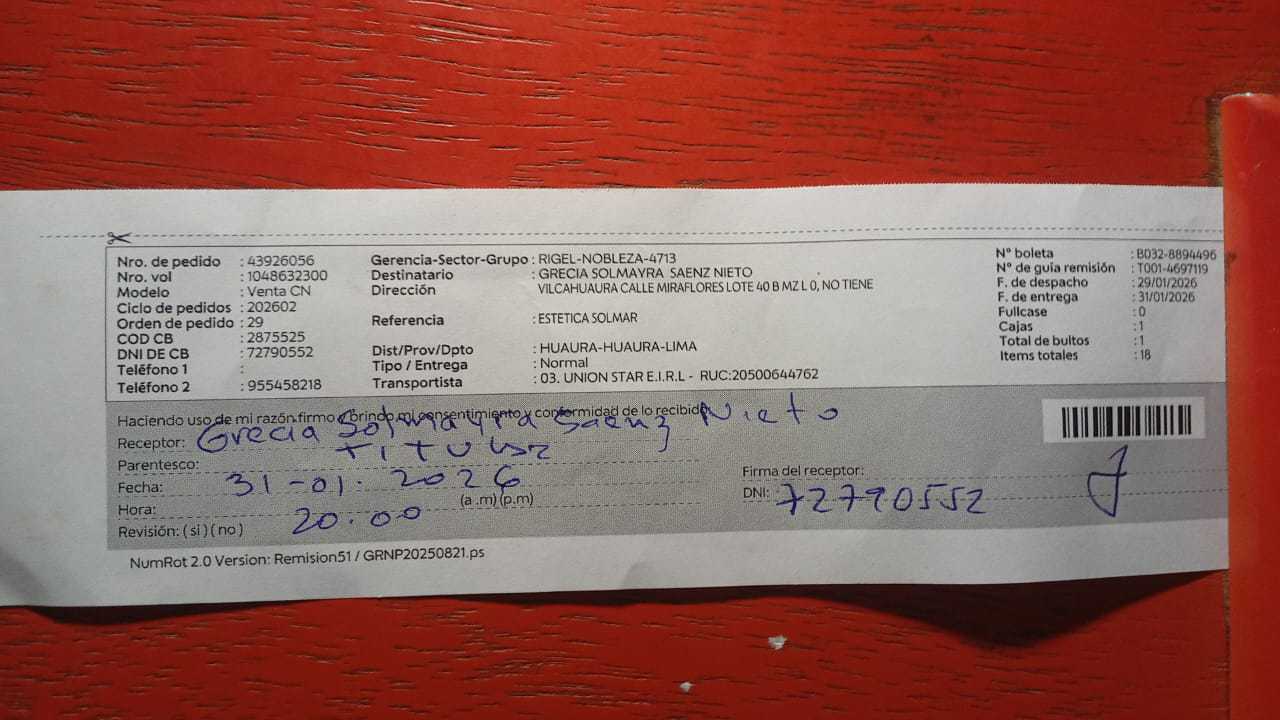 Nro. de pedido : 43926056
Nro. vol : 1048632300
Modelo : Venta CN
Ciclo de pedidos : 202602
Orden de pedido : 29
COD CB : 2875525
DNI DE CB : 72790552
Teléfono 1 :
Teléfono 2 : 955458218
Gerencia-Sector-Grupo : RIGEL-NOBLEZA-4713
Destinatario : GRECIA SOLMAYRA SAENZ NIETO
Dirección VILCAHUAURA CALLE MIRAFLORES LOTE 40 B MZ L 0, NO TIENE
Referencia : ESTETICA SOLMAR
Dist/Prov/Dpto : HUAURA-HUAURA-LIMA
Tipo / Entrega : Normal
Transportista : 03. UNION STAR E.I.R.L - RUC:20500644762
N° boleta : B032-8894496
N° de guia remisión : T001-4697119
F. de despacho : 29/01/2026
F. de entrega : 31/01/2026
Fullcase : 0
Cajas : 1
Total de bultos : 1
Items totales : 18
Haciendo uso de mi razón firmo y brindo mi consentimiento y conformidad de lo recibido
Receptor: Grecia Solmayra Saenz Nieto
Parentesco: Titular
Fecha: 31-01. 2026
Hora: 20.00 (a .m) (p.m)
Revisión: ( si ) ( no )
Firma del receptor:
DNI: 72790552
NumRot 2.0 Version: Remision51 / GRNP20250821.ps